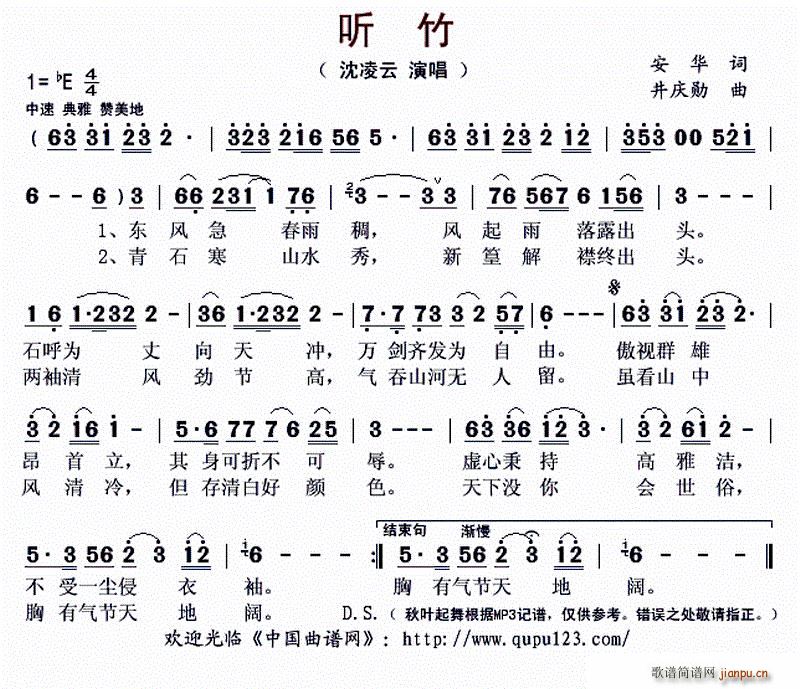 听 竹
( 沈凌云 演唱 )
安 华 词
1= ♭E 4/4
井庆勋 曲
中速 典雅 赞美地
( 63 331 23 2 · | 323 216 56 5 · | 63 331 23 2 12 | 353 00 521 |
6 - - 6 ) 3 | 66 231 1 76 | 3 - - 3 3 | 76 567 6 156 | 3 - - - |
1、东 风 急 春雨 稠, 风 起 雨 落露出 头。
2、青 石 寒 山水 秀, 新 篁 解 襟终出 头。
1 6 1·232 2 - | 36 1·232 2 - | 7·7 73 3 2 57 | 6 - - - | 63 31 23 2· |
石呼为 丈 向 天 冲, 万 剑齐发为 自 由。 傲视群 雄
两袖清 风 劲 节 高, 气 吞山河无 人 留。 虽看山 中
3 2 16 1 - | 5·6 77 7 6 25 | 3 - - - | 63 36 12 3· | 3 2 61 2 - |
昂 首 立, 其 身可折不 可 辱。 虚心秉 持 高 雅 洁,
风 清 冷, 但 存清白好 颜 色。 天下没 你 会 世 俗,
结束句 渐慢
5·3 56 2 3 12 | 6 - - - :‖ 5·3 56 2 3 12 | 6 - - - ‖
不 受一尘侵 衣 袖。 胸 有气节天 地 阔。
胸 有气节天 地 阔。 D.S. ( 秋叶起舞根据MP3记谱,仅供参考。错误之处敬请指正。)
欢迎光临《中国曲谱网》: http://www.qupu123.com/
歌谱简谱网
jianpu.cn